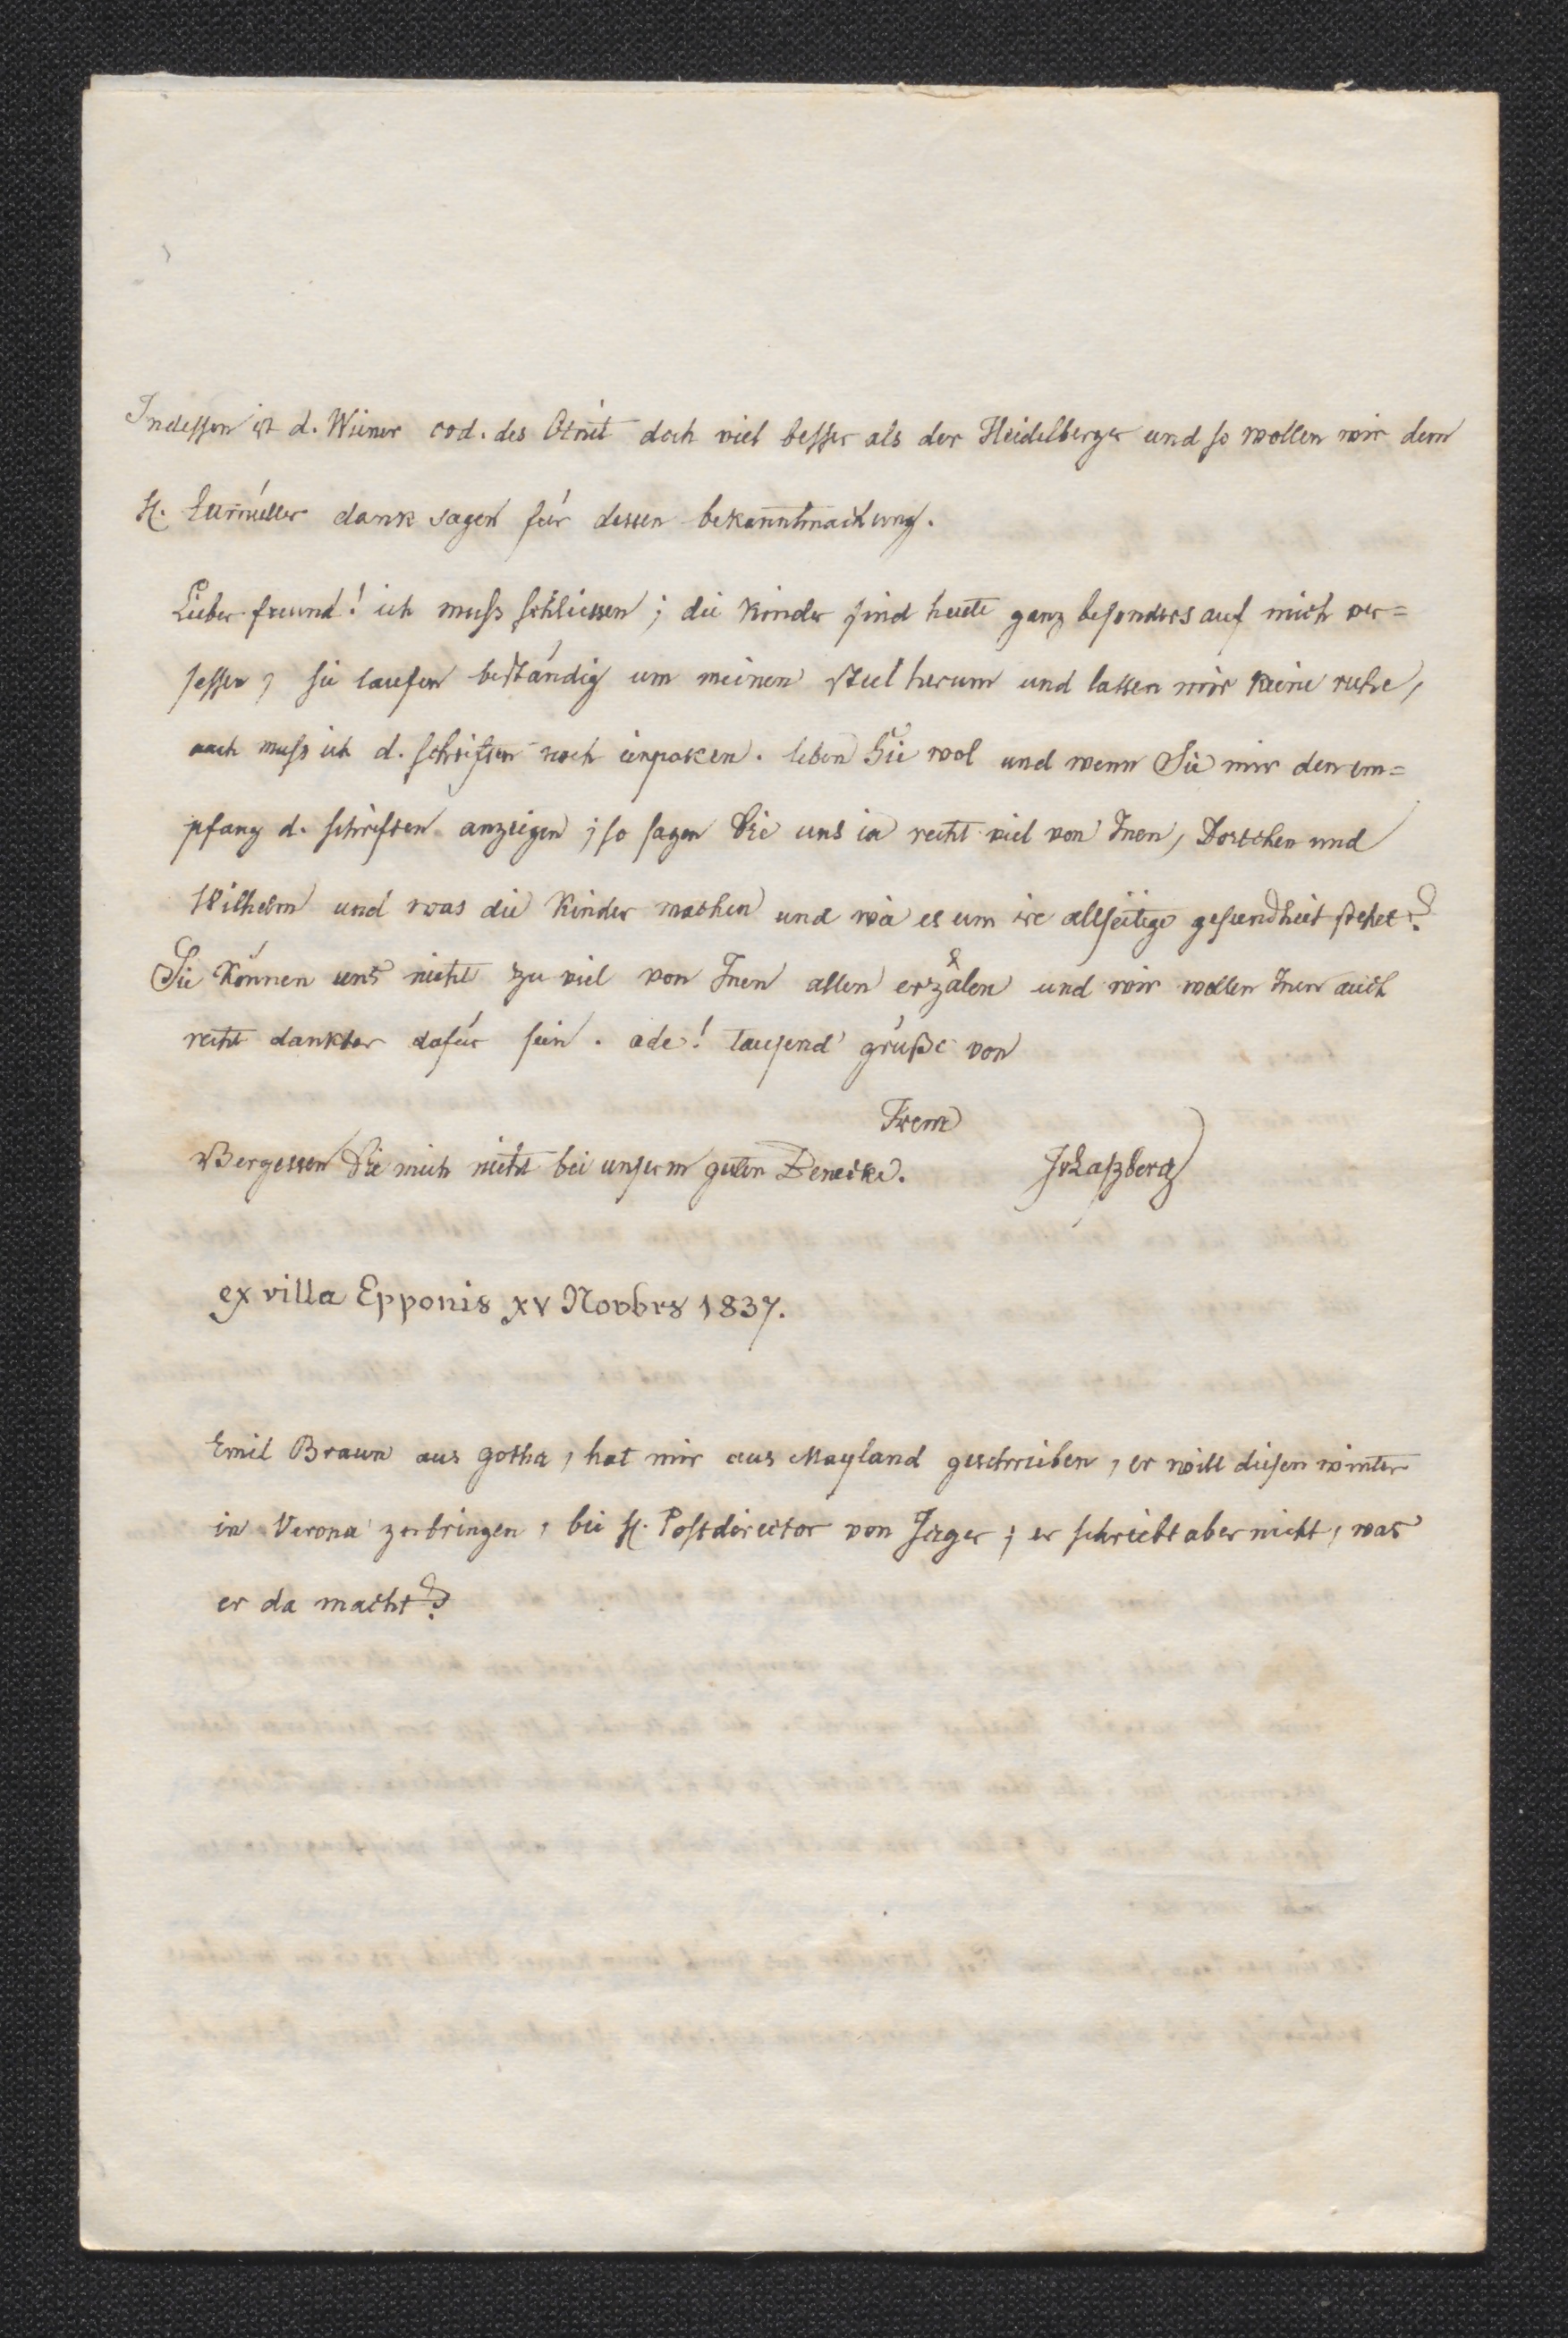 Indessen ist d. Wiener cod. des Otnit doch viel besser als der Heidelberger und so wollen wir dem
H. Ettmüller dank sagen für dessen bekanntmachung.
Lieber freund! ich muss schliessen; die kinder sind heute ganz besonders auf mich ver=
sessen, sie laufen beständig um meinen stul herum und lassen mir keine ruhe,
auch muss ich d. schriften noch einpaken. leben Sie wol und wenn Sie mir den em=
pfang d. schriften anzeigen; so sagen Sie uns ia recht viel von Inen, Dortchen und
Wilhelm und was die kinder machen und wie es um ire allseitige gesundheit stehet?
Sie können uns nicht zu viel von Inen allen erzälen und wir wollen Inen auch
recht dankbar dafür sein. ade! tausend grüße von
Irem
Vergessen Sie mich nicht bei unserm guten Benecke. JvLaßberg
ex villa Epponis XV Novbrs 1837.
Emil Braun aus gotha, hat mir aus Mayland geschrieben, er will diesen winter
in Verona zubringen, bei H. Postdirector von Jäger; er schreibt aber nicht, was
er da macht?